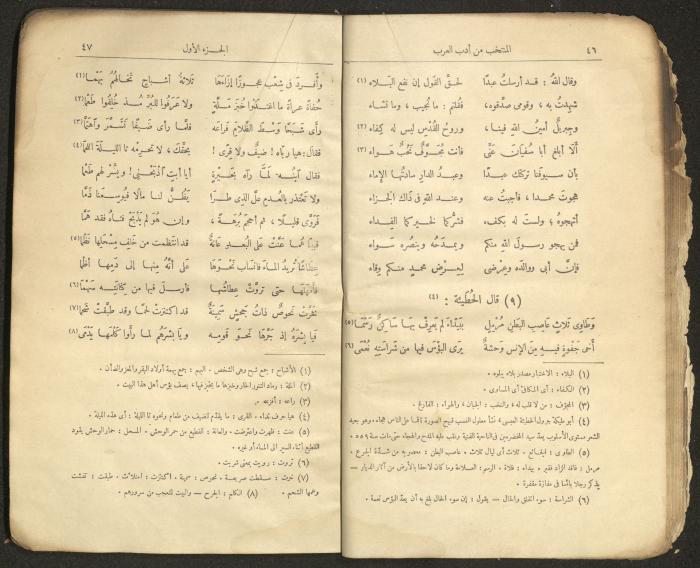 ٤٦
المنتخب من أدب العرب
وقال اللهُ : قد أرسلتُ عبدًا لحقّ القول إن نفع البلاء (١)
شهِدتُ به ، وقومى صدقوه، فقلتم : ما نُجيب ، وما نشاء
وجبريلٌ أمينُ اللهِ فينا، وروحُ القُدْسِ ليس له كِفاء (٢)
ألا أبلغ أبا سُفيانَ عنّى فأنت مُجوَّفٌ نَخِبٌ هَواء (٣)
بأن سيوفنا تركتك عبدًا وعبدُ الدارِ سادتُها الإماء
هجوتَ محمدا، فأجبتُ عنه وعند اللهِ فى ذاك الجزاء
أتهجوه؛ ولستَ له بكفء، فشرُّكما لخيركما الفِداء
فمن يهجو رسولَ اللهِ منكم ويمدحُه وينصُره سَواء
فإنَّ أبى ووالدَه وعِرضى لعِرْضِ محمدٍ منكم وِقاء
(٩) قال الحُطَيْئة : (٤)
وطاوِى ثلاثٍ عاصِبِ البَطنِ مُرْمِلٍ ببَيْداءَ لم يعرِف بها ساكِنٌ رَسْمًا (٥)
أخى جَفْوةٍ فيـه مِن الإنسِ وَحْشةٌ يرَى البؤسَ فيها من شَراسَتِه نُعْمَى (٦)
(١) البلاء : الاختبار مصدر بلاه يبلوه .
(٢) الكفاء : أى المكافئ أى المساوى .
(٣) المجوّف : من لا قلب له ، والنخب : الجبان ، والهواء : الفارغ .
(٤) أبو مليكة جرول الحطيئة العبسى، نشأ معلول النسب قبيح الصورة ناقما على الناس هجاء، وهو جيد
الشعر مستوى الأسلوب يعدّ سيد المخضرمين فى الناحية الفنية وغلب عليه المدح والهجاء حتى مات سنة ٥٩ ه .
(٥) الطاوى : الجائع . ثلاث أى ليال ثلاث . عاصب البطن : معصر به من شدّة الجوع .
مرمل : فاقد الزاد فقير . بيداء : فلاة . الرسم : العلامة وما كان لاحقا بالأرض من آثار الديار —
يذكر رجلا بائسا فى مفازة مقفرة .
(٦) الشراسة : سوء الخلق والحال — يقول : إن سوء الحال بلغ به أن يعدّ البؤس نعمة .
الجزء الأول
٤٧
وأفردَ فى شِعْبٍ عجوزًا إزاءَها ثلاثةُ أشباحٍ تخالهُمُ بَهْما (١)
حُفاةٌ عراةٌ ما اغتذَوْا خبزَ مَلّةٍ ولا عرَفوا للبُرِّ مُذ خُلِقوا طَعْما (٢)
رأى شَبَحًا وسْطَ الظلامِ فراعَه فلمّا رأى ضَيفًا تشمّر واهتمّا (٣)
فقال: هيا ربّاه! ضيفٌ ولا قِرى ! بحقّك، لا تحرِمْه تا الليلةَ اللحما (٤)
فقال آبنُه لمّا رآه بحَيْرةٍ أيا أبتِ اذبَحنى! ويسِّر لهم طُعْما
ولا تعتذر بالعُدمِ علّ الذى طرا يظنُّ لنا مالًا فيُوسِعنا ذَمّا
فروّى قليلًا ، ثم أحجم بُرهةً ، وإن هُو لم يذبَحْ فتاهُ فقد همّا
فبينا هما عنّت على البعدِ عانةٌ قد انتظمت من خلفِ مِسحلها نَظْما (٥)
عِطاشًا تُريدُ الماءَ فانساب نحوَها على أنّه منها إلى دمِها أظْما
فأمهلها حتى تروّتْ عِطاشُها فأرسل فيها من كِنانتِه سهْما (٦)
فخرّت نَحوصٌ ذاتُ جحشٍ سمينةٌ قد اكتنزتْ لحمًا وقد طبّقت شَحْما (٧)
فيا بِشرَه إذ جَرَّها نحوَ قومِه ويا بِشرَهم لما رأوا كَلْمَها يَدْمَى (٨)
(١) الأشباح : جمع شبح وهى الشخص . البهم : جمع بهمة أولاد البقر والمعز والضأن .
(٢) الملة : رماد التنور الحار وخبزها ما يخبز فيها، يصف بؤس أهل هذا البيت .
(٣) راعه : أفزعه .
(٤) هيا حرف نداء . القرى : ما يقدّم للضيف من طعام ونحوه تا الليلة : أى هذه الليلة .
(٥) عنت : ظهرت واعترضت . والعانة : القطيع من حمر الوحش . المسحل : حمار الوحش يقود
القطيع أثناء السير الى الماء أو غيره .
(٦) تروت : رويت بمعنى شربت .
(٧) خرّت : سقطت صريعة . نحوص : سمينة . اكتنزت : امتلأت . طبقت :
وعمها الشحم . (٨) الكلم : الجرح — والبيت للتعجب من سرورهم .